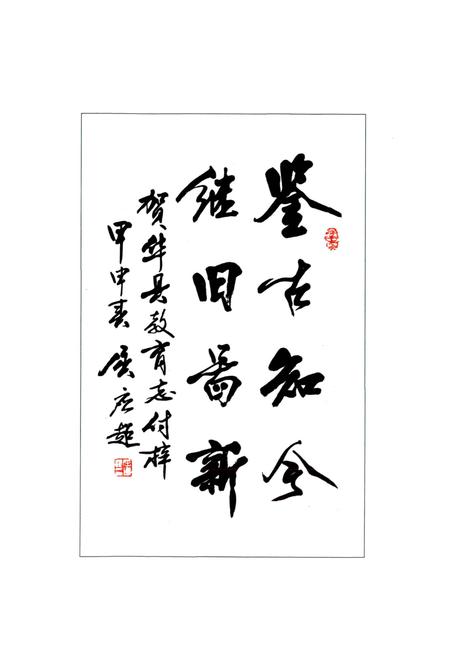 鉴古知今
继旧图新
贺华县教育志付梓
甲申春